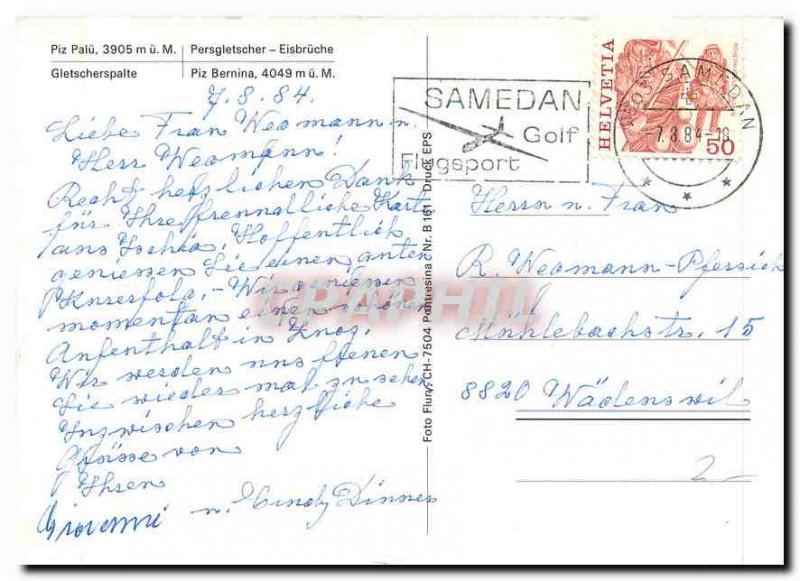 Piz Palü, 3905 m ü. M. Persgletscher – Eisbrüche
Gletscherspalte Piz Bernina, 4049 m ü. M.
7.8.84.
Liebe Frau Wegmann u.
Herr Wegmann!
Recht herzlichen Dank
für Ihre freundliche Karte
aus Ischia. Hoffentlich
geniessen Sie einen guten
Kurerfolg. – Wir geniessen
momentan einen schönen
Aufenthalt in
Wir werden uns freuen
Sie wieder mal zu sehen
Inzwischen herzliche
Grüsse von
Ihren
Giovanni u. Dinner
Foto Flury, CH-7504 Pontresina / Nr. B 161 Druck EPS
SAMEDAN
Golf
Flugsport
HELVETIA
50
7503 SAMEDAN
-7.8.84-18
Herrn u. Frau
R. Wegmann-Pfersich
Mühlebachstr. 15
8820 Wädenswil
2-
CPAPHIL